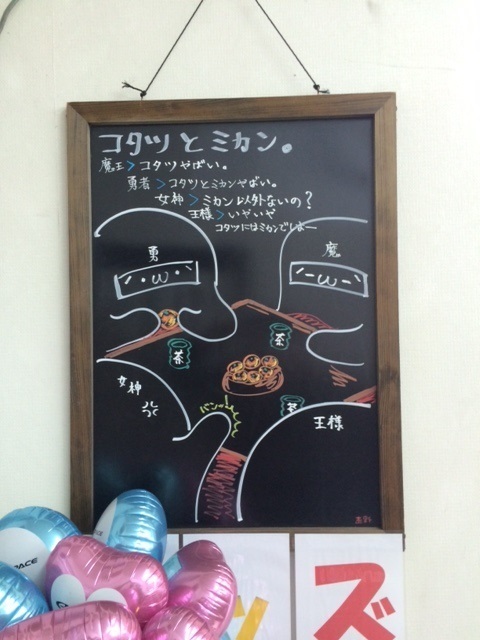 コタツとミカン。
魔王＞コタツやばい。
勇者＞コタツとミカンやばい。
女神＞ミカン以外ないの？
王様＞いやいや
コタツにはミカンでしょー
勇
魔
・ω・
ーωー
茶
茶
女神
バンッ
茶
王様
ACE
ズ